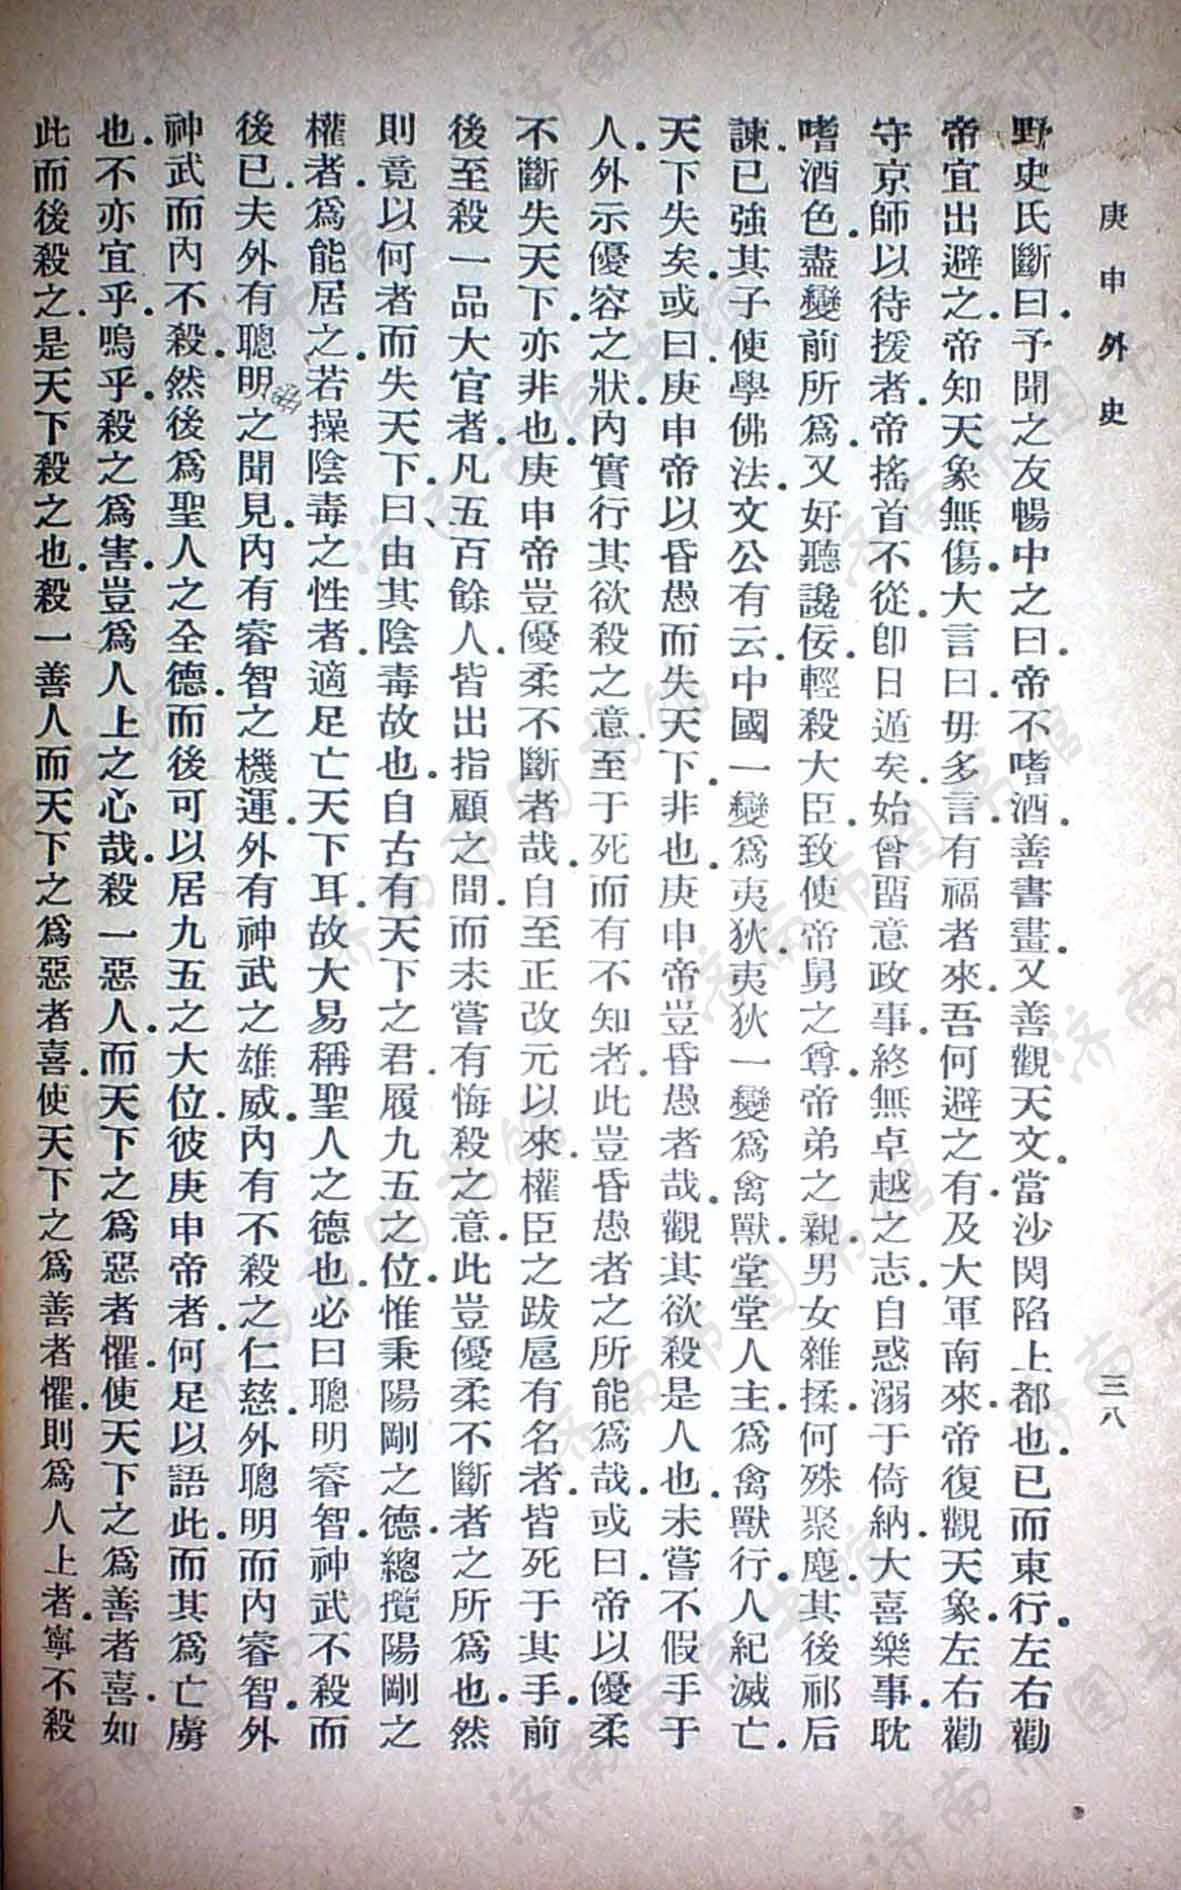 庚申外史
三八
野史氏斷曰．予聞之友暢中之曰．帝不嗜酒．善書畫．又善觀天文．當沙閃陷上都也．已而東行．左右勸
帝宜出避之．帝知天象無傷．大言曰．毋多言．有福者來．吾何避之有．及大軍南來．帝復觀天象．左右勸
守京師以待援者．帝搖首不從．卽日遁矣．始曾畱意政事．終無卓越之志．自惑溺于倚納．大喜樂事．耽
嗜酒色．盡變前所爲．又好聽讒佞．輕殺大臣．致使帝舅之尊．帝弟之親．男女雜揉．何殊聚麀．其後祁后
諫．已強其子使學佛法．文公有云．中國一變爲夷狄．夷狄一變爲禽獸．堂堂人主．爲禽獸行．人紀滅亡．
天下失矣．或曰．庚申帝以昏愚而失天下．非也．庚申帝豈昏愚者哉．觀其欲殺是人也．未嘗不假手于
人．外示優容之狀．內實行其欲殺之意．至于死而有不知者．此豈昏愚者之所能爲哉．或曰．帝以優柔
不斷失天下．亦非也．庚申帝豈優柔不斷者哉．自至正改元以來．權臣之跋扈有名者．皆死于其手．前
後至殺一品大官者．凡五百餘人．皆出指顧之間．而未嘗有悔殺之意．此豈優柔不斷者之所爲也．然
則竟以何者而失天下．曰、由其陰毒故也．自古有天下之君．履九五之位．惟秉陽剛之德．總攬陽剛之
權者．爲能居之．若操陰毒之性者．適足亡天下耳．故大易稱聖人之德也．必曰聰明睿智．神武不殺而
後已．夫外有聰明之聞見．內有睿智之機運．外有神武之雄威．內有不殺之仁慈．外聰明而內睿智．外
神武而內不殺．然後爲聖人之全德．而後可以居九五之大位．彼庚申帝者．何足以語此．而其爲亡虜
也．不亦宜乎．嗚乎．殺之爲害．豈爲人上之心哉．殺一惡人．而天下之爲惡者懼．使天下之爲善者喜．如
此而後殺之．是天下殺之也．殺一善人而天下之爲惡者喜．使天下之爲善者懼．則爲人上者．寧不殺